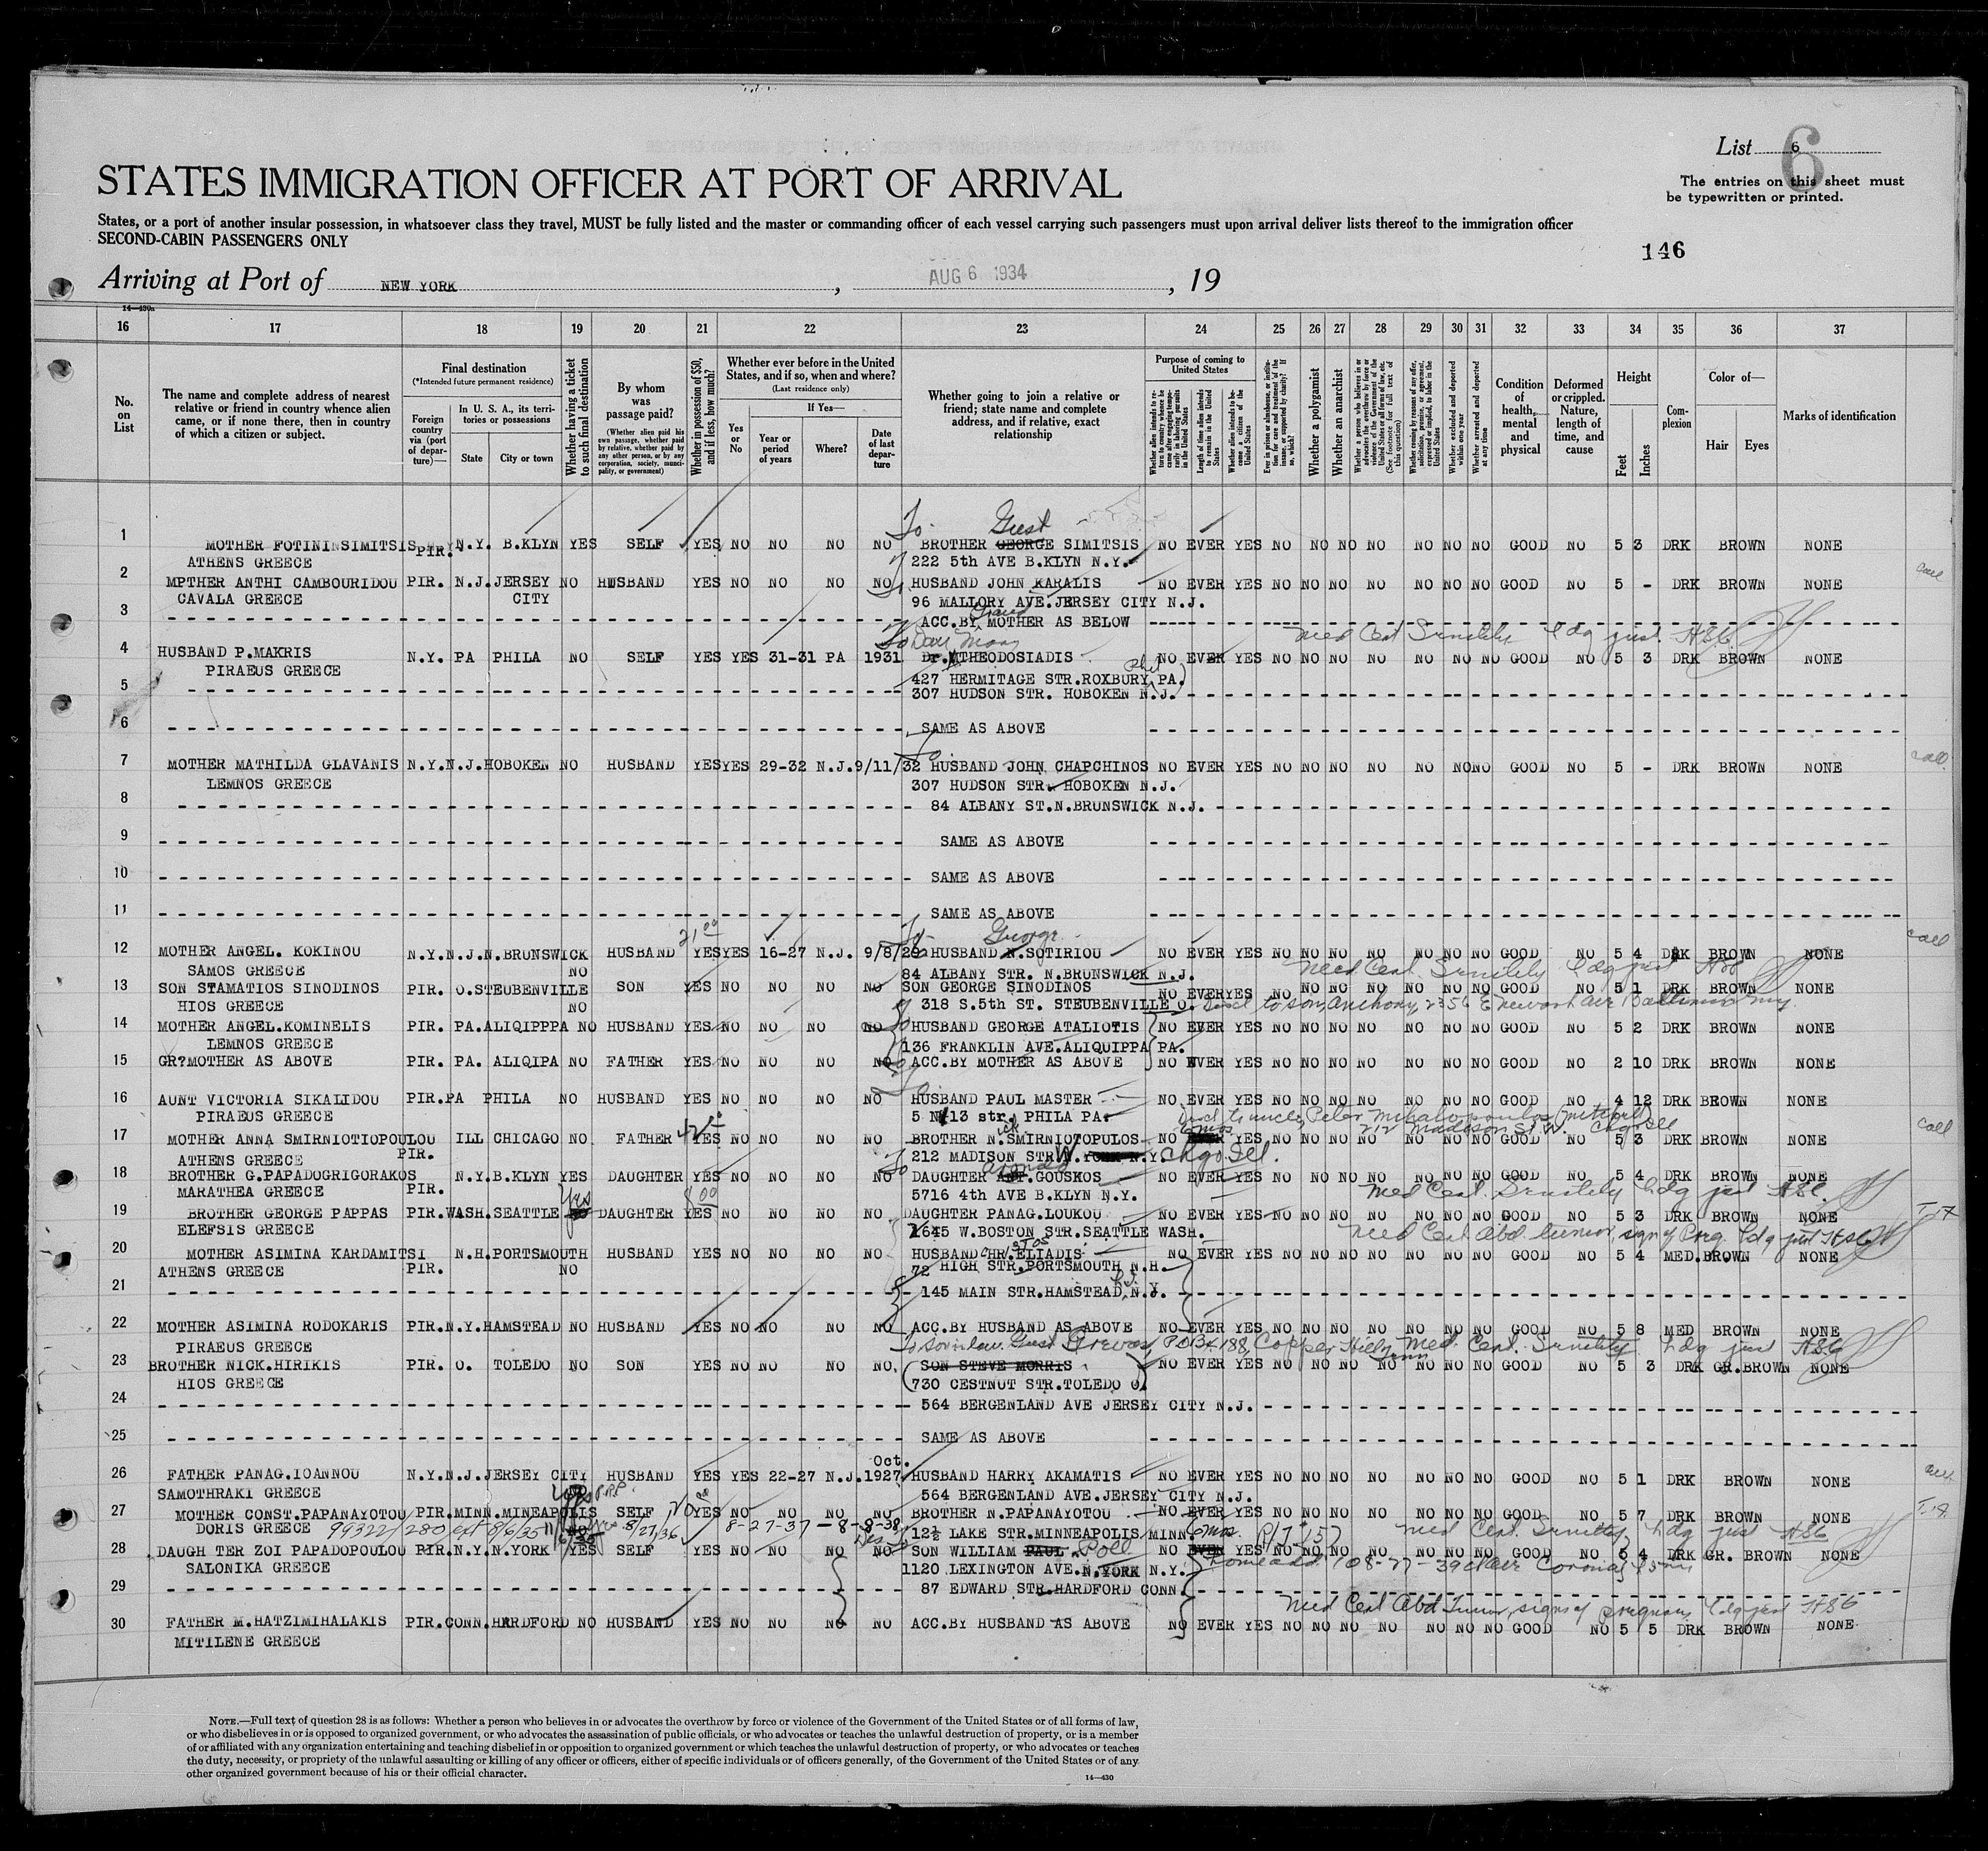 List 6
6
The entries on this sheet must
be typewritten or printed.
STATES IMMIGRATION OFFICER AT PORT OF ARRIVAL
States, or a port of another insular possession, in whatsoever class they travel, MUST be fully listed and the master or commanding officer of each vessel carrying such passengers must upon arrival deliver lists thereof to the immigration officer
SECOND-CABIN PASSENGERS ONLY
146
Arriving at Port of NEW YORK, AUG 6 1934, 19
14—430a
16 17 18 19 20 21 22 23 24 25 26 27 28 29 30 31 32 33 34 35 36 37
No. on List
The name and complete address of nearest relative or friend in country whence alien came, or if none there, then in country of which a citizen or subject.
Final destination
(*Intended future permanent residence)
Foreign country via (port of departure)—
In U. S. A., its territories or possessions
State City or town
Whether having a ticket to such final destination
By whom was passage paid?
(Whether alien paid his own passage, whether paid by relative, whether paid by any other person, or by any corporation, society, municipality, or government)
Whether in possession of $50, and if less, how much?
Whether ever before in the United States, and if so, when and where?
(Last residence only)
Yes or No
If Yes—
Year or period of years
Where?
Date of last departure
Whether going to join a relative or friend; state name and complete address, and if relative, exact relationship
Purpose of coming to United States
Length of time alien intends to remain in the United States
Whether alien intends to become a citizen of the United States
Whether a polygamist
Whether an anarchist
Whether excluded and deported within one year
Whether arrested and deported at any time
Condition of health, mental and physical
Deformed or crippled. Nature, length of time, and cause
Height
Feet Inches
Complexion
Color of—
Hair Eyes
Marks of identification
To Gust
1 MOTHER FOTINI SIMITSIS PIR. N.Y. B.KLYN YES SELF YES NO NO NO NO BROTHER GEORGE SIMITSIS NO EVER YES NO NO NO NO NO NO NO GOOD NO 5 3 DRK BROWN NONE
ATHENS GREECE 222 5th AVE B.KLYN N.Y.
2 MPTHER ANTHI CAMBOURIDOU PIR. N.J. JERSEY NO HUSBAND YES NO NO NO NO HUSBAND JOHN KARALIS NO EVER YES NO NO NO NO NO NO NO GOOD NO 5 - DRK BROWN NONE
CAVALA GREECE CITY 96 MALLORY AVE.JERSEY CITY N.J.
3 ACC.BY Grand MOTHER AS BELOW
Med Cert Senility
4 HUSBAND P.MAKRIS N.Y. PA PHILA NO SELF YES YES 31-31 PA 1931 Dr. THEODOSIADIS NO EVER YES NO NO NO NO NO NO NO GOOD NO 5 3 DRK BROWN NONE
PIRAEUS GREECE 427 HERMITAGE STR.ROXBURY PA.
5 307 HUDSON STR. HOBOKEN N.J.
6 SAME AS ABOVE
7 MOTHER MATHILDA GLAVANIS N.Y. N.J. HOBOKEN NO HUSBAND YES YES 29-32 N.J. 9/11/32 HUSBAND JOHN CHAPCHINOS NO EVER YES NO NO NO NO NO NO NO GOOD NO 5 - DRK BROWN NONE
LEMNOS GREECE 307 HUDSON STR. HOBOKEN N.J.
8 84 ALBANY ST.N.BRUNSWICK N.J.
9 SAME AS ABOVE
10 SAME AS ABOVE
11 SAME AS ABOVE
George
12 MOTHER ANGEL. KOKINOU N.Y. N.J. N.BRUNSWICK HUSBAND YES YES 16-27 N.J. 9/8/29 HUSBAND N.SOTIRIOU NO EVER YES NO NO NO NO NO NO NO GOOD NO 5 4 DRK BROWN NONE
SAMOS GREECE NO 84 ALBANY STR. N.BRUNSWICK N.J.
13 SON STAMATIOS SINODINOS PIR. O. STEUBENVILLE SON YES NO NO NO NO SON GEORGE SINODINOS NO EVER YES NO NO NO NO NO NO NO GOOD NO 5 1 DRK BROWN NONE
HIOS GREECE NO 318 S.5th ST. STEUBENVILLE O.
14 MOTHER ANGEL.KOMINELIS PIR. PA. ALIQIPPPA NO HUSBAND YES NO NO NO NO HUSBAND GEORGE ATALIOTIS NO EVER YES NO NO NO NO NO NO NO GOOD NO 5 2 DRK BROWN NONE
LEMNOS GREECE 136 FRANKLIN AVE.ALIQUIPPA PA.
15 GR?MOTHER AS ABOVE PIR. PA. ALIQIPA NO FATHER YES NO NO NO NO ACC.BY MOTHER AS ABOVE NO EVER YES NO NO NO NO NO NO NO GOOD NO 2 10 DRK BROWN NONE
16 AUNT VICTORIA SIKALIDOU PIR. PA PHILA NO HUSBAND YES NO NO NO NO HUSBAND PAUL MASTER NO EVER YES NO NO NO NO NO NO NO GOOD NO 4 12 DRK BROWN NONE
PIRAEUS GREECE 5 N 13 str. PHILA PA.
17 MOTHER ANNA SMIRNIOTIOPOULOU ILL CHICAGO NO FATHER YES NO NO NO NO BROTHER N.SMIRNIOTOPULOS NO YES NO NO NO NO NO NO NO GOOD NO 5 3 DRK BROWN NONE
ATHENS GREECE PIR. 212 MADISON STR. W. Chgo Ill.
18 BROTHER G.PAPADOGRIGORAKOS N.Y. B.KLYN YES DAUGHTER YES NO NO NO NO DAUGHTER GOUSKOS NO EVER YES NO NO NO NO NO NO NO GOOD NO 5 4 DRK BROWN NONE
MARATHEA GREECE PIR. 5716 4th AVE B.KLYN N.Y.
19 BROTHER GEORGE PAPPAS PIR. WASH. SEATTLE Yes DAUGHTER YES NO NO NO NO DAUGHTER PANAG.LOUKOU NO EVER YES NO NO NO NO NO NO NO GOOD NO 5 3 DRK BROWN NONE
ELEFSIS GREECE 1645 W.BOSTON STR.SEATTLE WASH.
20 MOTHER ASIMINA KARDAMITSI N.H. PORTSMOUTH HUSBAND YES NO NO NO NO HUSBAND CHR.ELIADIS NO EVER YES NO NO NO NO NO NO NO GOOD NO 5 4 MED. BROWN NONE
ATHENS GREECE PIR. NO 72 HIGH STR.PORTSMOUTH N.H.
21 145 MAIN STR.HAMSTEAD N.Y.
22 MOTHER ASIMINA RODOKARIS PIR. N.Y. HAMSTEAD NO HUSBAND YES NO NO NO NO ACC.BY HUSBAND AS ABOVE NO EVER YES NO NO NO NO NO NO NO GOOD NO 5 8 MED BROWN NONE
PIRAEUS GREECE
23 BROTHER NICK.HIRIKIS PIR. O. TOLEDO NO SON YES NO NO NO NO SON STEVE MORRIS NO EVER YES NO NO NO NO NO NO NO GOOD NO 5 3 DRK GR. BROWN NONE
HIOS GREECE 730 CESTNUT STR.TOLEDO O.
24 564 BERGENLAND AVE JERSEY CITY N.J.
25 SAME AS ABOVE
26 FATHER PANAG.IOANNOU N.Y. N.J. JERSEY CITY HUSBAND YES YES 22-27 N.J. Oct. 1927 HUSBAND HARRY AKAMATIS NO EVER YES NO NO NO NO NO NO NO GOOD NO 5 1 DRK BROWN NONE
SAMOTHRAKI GREECE 564 BERGENLAND AVE.JERSEY CITY N.J.
27 MOTHER CONST.PAPANAYOTOU PIR. MINN. MINEAPOLIS SELF YES NO NO NO NO BROTHER N.PAPANAYOTOU NO EVER YES NO NO NO NO NO NO NO GOOD NO 5 7 DRK BROWN NONE
DORIS GREECE 12½ LAKE STR.MINNEAPOLIS MINN.
28 DAUGH TER ZOI PAPADOPOULOU PIR. N.Y. N.YORK YES SELF YES NO NO NO NO SON WILLIAM PAUL Poll NO EVER YES NO NO NO NO NO NO NO GOOD NO 5 4 DRK GR. BROWN NONE
SALONIKA GREECE 1120 LEXINGTON AVE.N.YORK N.Y.
29 87 EDWARD STR.HARDFORD CONN.
30 FATHER M.HATZIMIHALAKIS PIR. CONN. HARDFORD NO HUSBAND YES NO NO NO NO ACC.BY HUSBAND AS ABOVE NO EVER YES NO NO NO NO NO NO NO GOOD NO 5 5 DRK BROWN NONE
MITILENE GREECE
NOTE.—Full text of question 28 is as follows: Whether a person who believes in or advocates the overthrow by force or violence of the Government of the United States or of all forms of law,
or who disbelieves in or is opposed to organized government, or who advocates the assassination of public officials, or who advocates or teaches the unlawful destruction of property, or is a member
of or affiliated with any organization entertaining and teaching disbelief in or opposition to organized government or which teaches the unlawful destruction of property, or who advocates or teaches
the duty, necessity, or propriety of the unlawful assaulting or killing of any officer or officers, either of specific individuals or of officers generally, of the Government of the United States or of any
other organized government because of his or their official character.
14—430